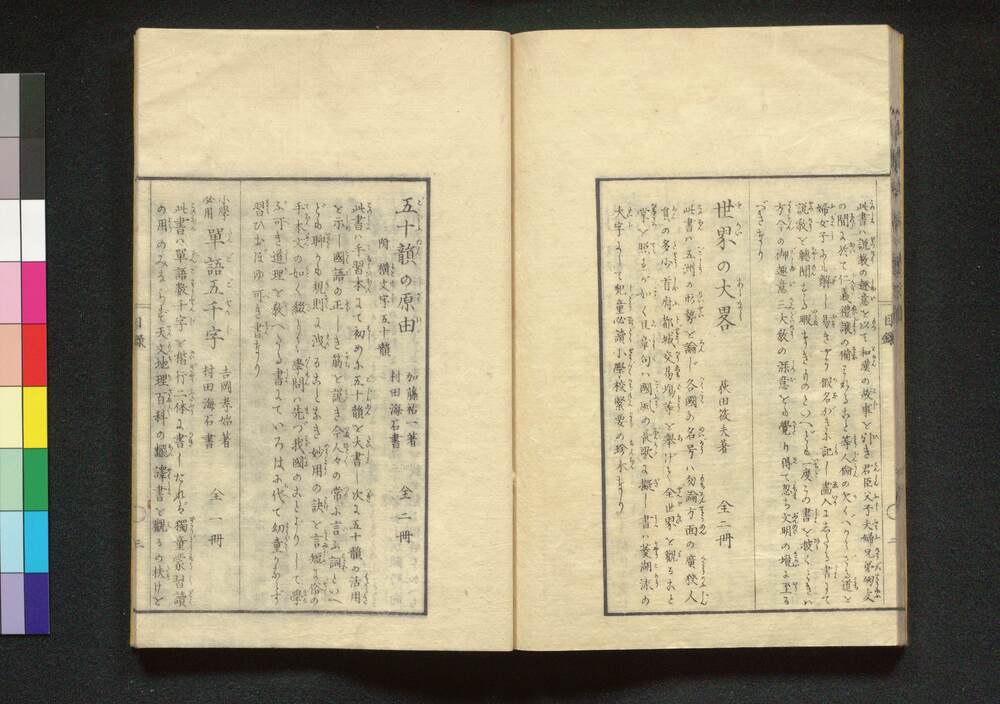 此書ハ説教の趣意を以て和漢の故事を引き君臣父子夫婦兄弟朋友
の間に於て仁義禮讓の備はれること等人倫の欠くべからざる道を
婦女子にも解し易きやう假名がきに記し畫入にしたる書にて
説教を聽聞する暇なきものといへども一度この書を披くときハ
方今の御趣意三大教の深意を覺り得て忽ち文明の境に至る
べきなり
世界の大畧 荻田筱夫著 全二冊
此書ハ五洲の形勢を論じ各國の名号ハ勿論方面の廣狹人
員の多少首府都城交易場等を擧げて全世界を觀ること
掌を照すがごとく且章句ハ國風の長歌に擬し書ハ菱湖流の
大字にして兒童必讀小學校緊要の珍本なり
目録 二
五十韻の原由 加藤祐一著 全二冊
附 横文字五十韻 村田海石書
此書ハ手習本にて初めに五十韻を大書し次に五十韻の活用
を示し國語の正しき筋を説き今人々の常に言ふ詞といへ
ども聊かも規則に洩るること無き妙用の訣を言短に俗の
手本文の如く綴りなし學問ハ先づ我國のことよりして學
ぶ可き道理を教へたる書にていろはに代て幼童かならず
習ひおぼゆ可き書なり
小學必用 單語五千字 吉岡孝始著 全一冊
村田海石書
此書ハ單語數千字を楷行二体に書したれバ獨童蒙習讀
の用のみならず天文地理百科の飜譯書を觀るの扶けと
目録 三